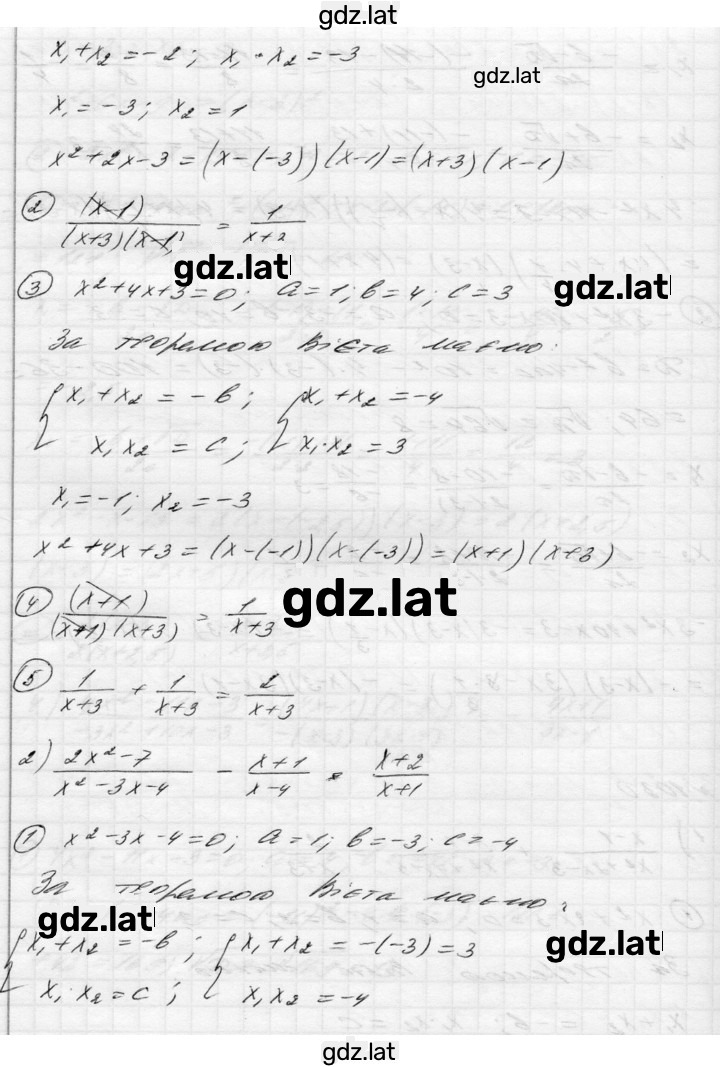 gdz.lat
x₁ + x₂ = -2; x₁ · x₂ = -3
gdz.lat
x₁ = -3; x₂ = 1
x² + 2x - 3 = (x - (-3))(x - 1) = (x + 3)(x - 1)
② (x-1)/((x+3)(x-1)) = 1/(x+2
gdz.lat
③ x² + 4x + 3 = 0; a = 1; b = 4; c = 3
gdz.lat
За теоремою Вієта маємо:
{x₁ + x₂ = -b; {x₁ + x₂ = -4
x₁x₂ = c; x₁·x₂ = 3
x₁ = -1; x₂ = -3
x² + 4x + 3 = (x - (-1))(x - (-3)) = (x + 1)(x + 3)
④ (x+1)/((x+1)(x+3)) = 1/(x+3
gdz.lat
⑤ 1/(x+3) + 1/(x+3) = 2/(x+3)
2) (2x² - 7)/(x² - 3x - 4) - (x+1)/(x-4) = (x+2)/(x+1)
① x² - 3x - 4 = 0; a = 1; b = -3; c = -4
За теоремою Вієта маємо:
gdz.lat
{x₁ + x₂ = -b; {x₁ + x₂ = -(-3) = 3
gdz.lat
x₁·x₂ = c; x₁x₂ = -4
gdz.lat